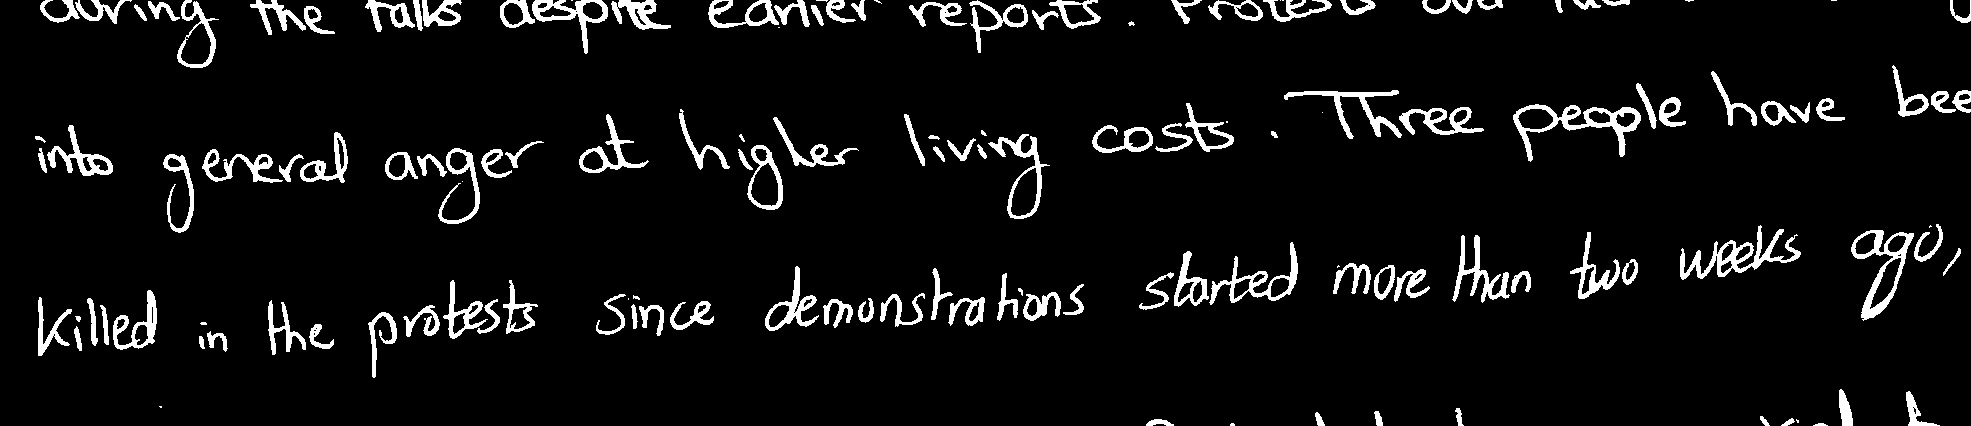 during the talks despite earlier reports. Protests over
into general anger at higher living costs. Three people have bee
killed in the protests since demonstrations started more than two weeks ago,